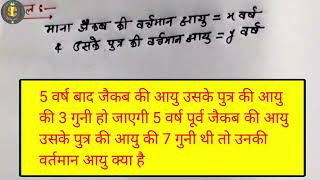 माना जैकब की वर्तमान आयु = x वर्ष
& उसके पुत्र की वर्तमान आयु = y वर्ष
5 वर्ष बाद जैकब की आयु उसके पुत्र की आयु
की 3 गुनी हो जाएगी 5 वर्ष पूर्व जैकब की आयु
उसके पुत्र की आयु की 7 गुनी थी तो उनकी
वर्तमान आयु क्या है